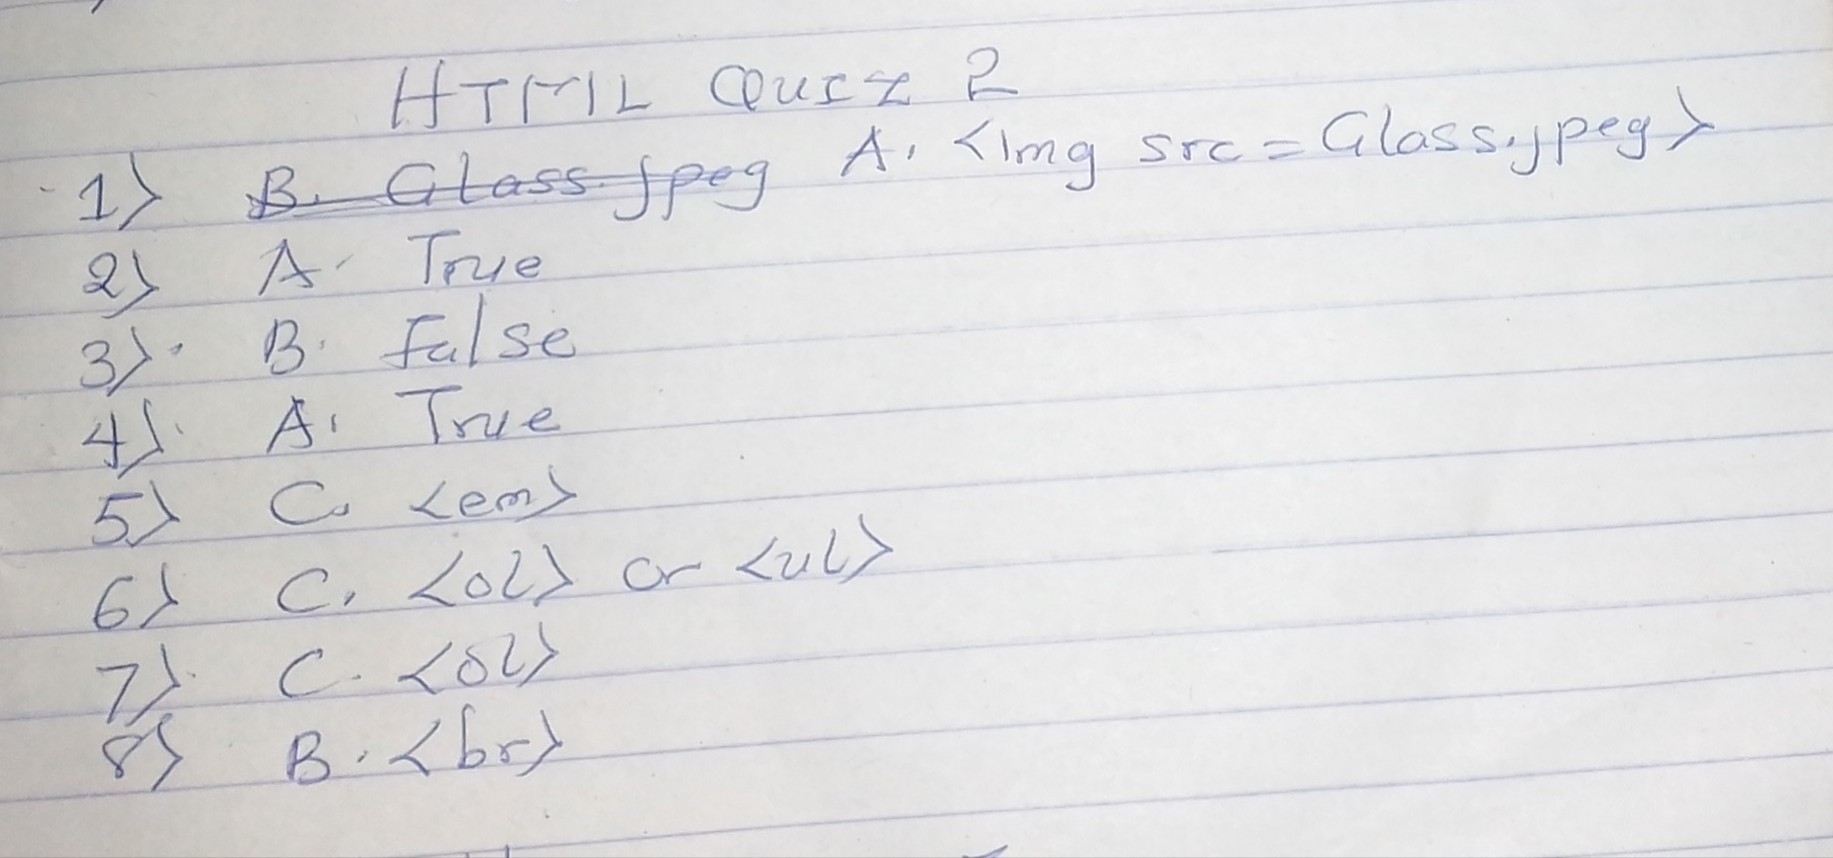 HTML Quiz 2
1) B. Glass.jpeg A. <img src=Glass.jpeg>
2) A. True
3) B. False
4) A. True
5) C. <em>
6) C. <ol> or <ul>
7) C. <ol>
8) B. <br>